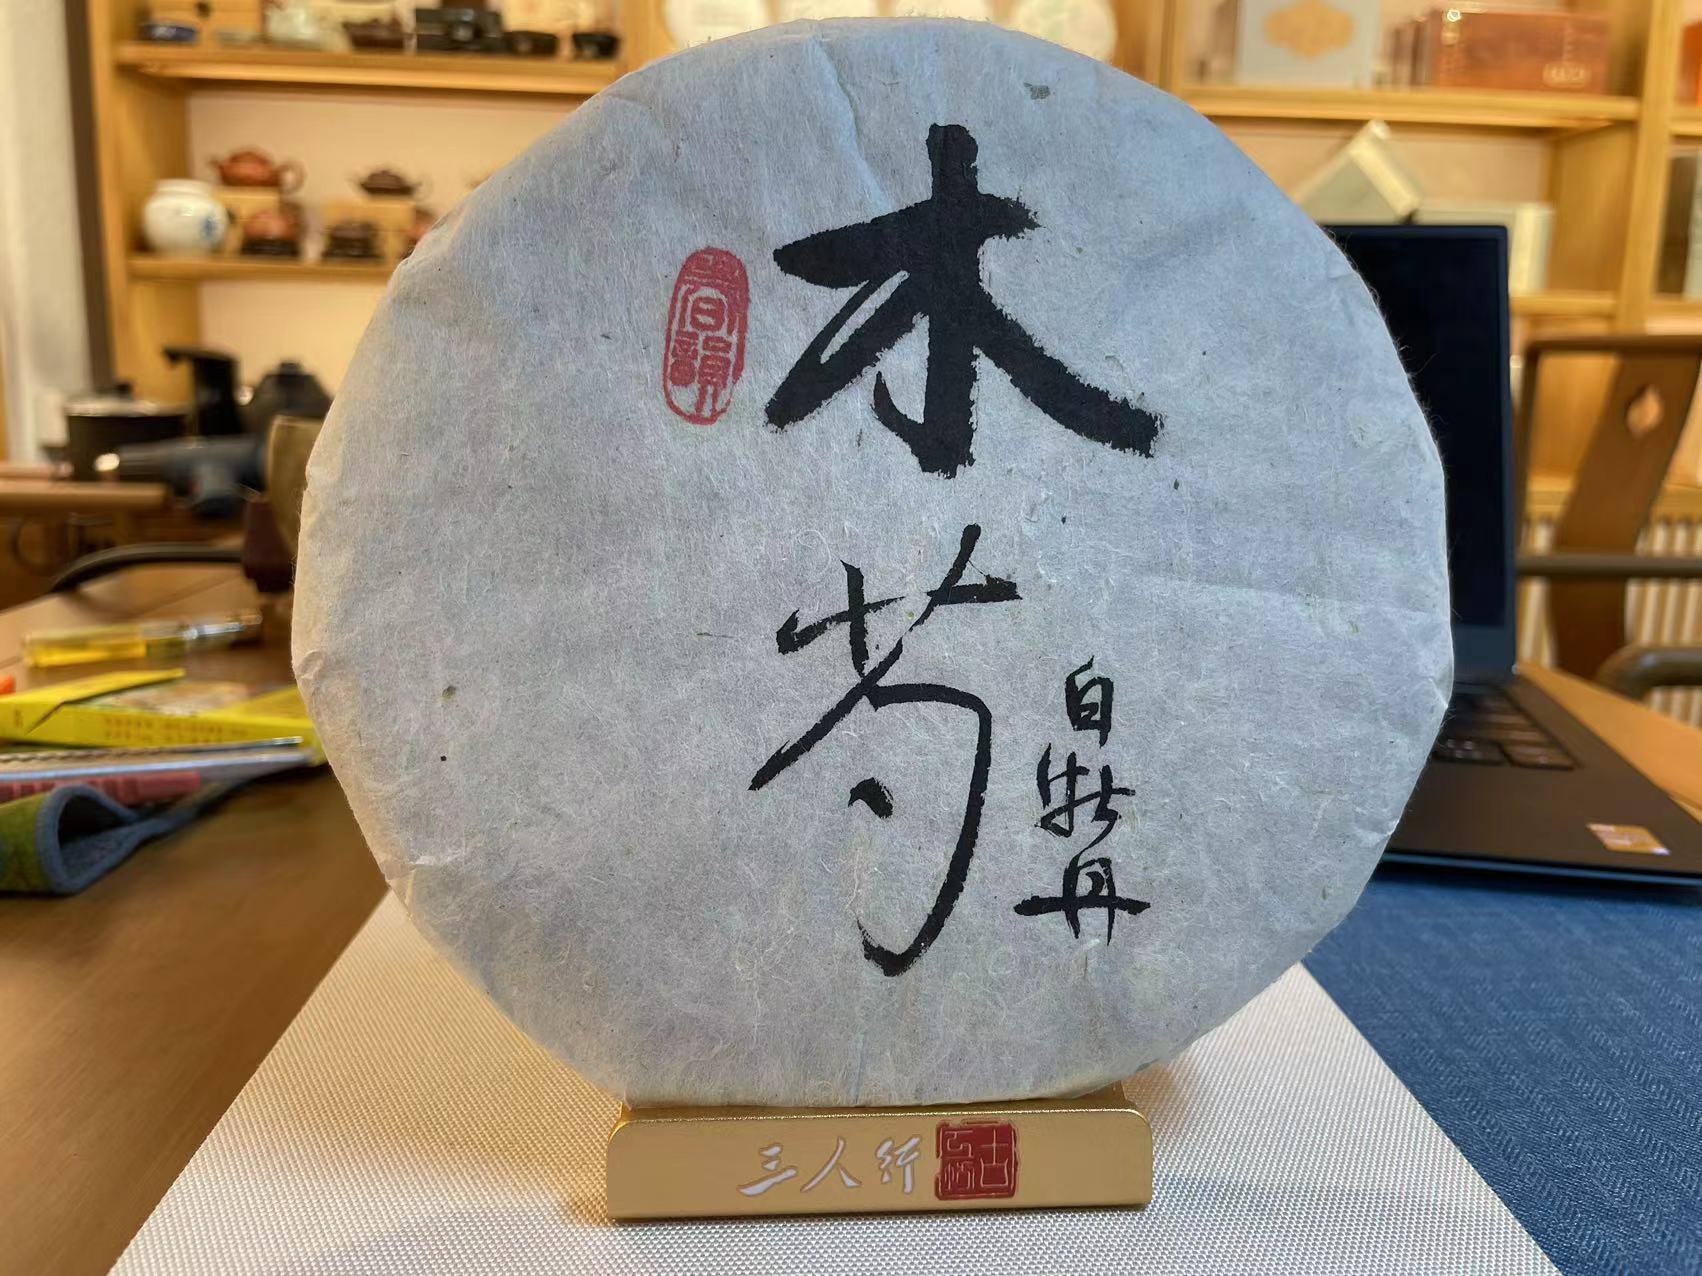 木
芍
白牡丹
三人行